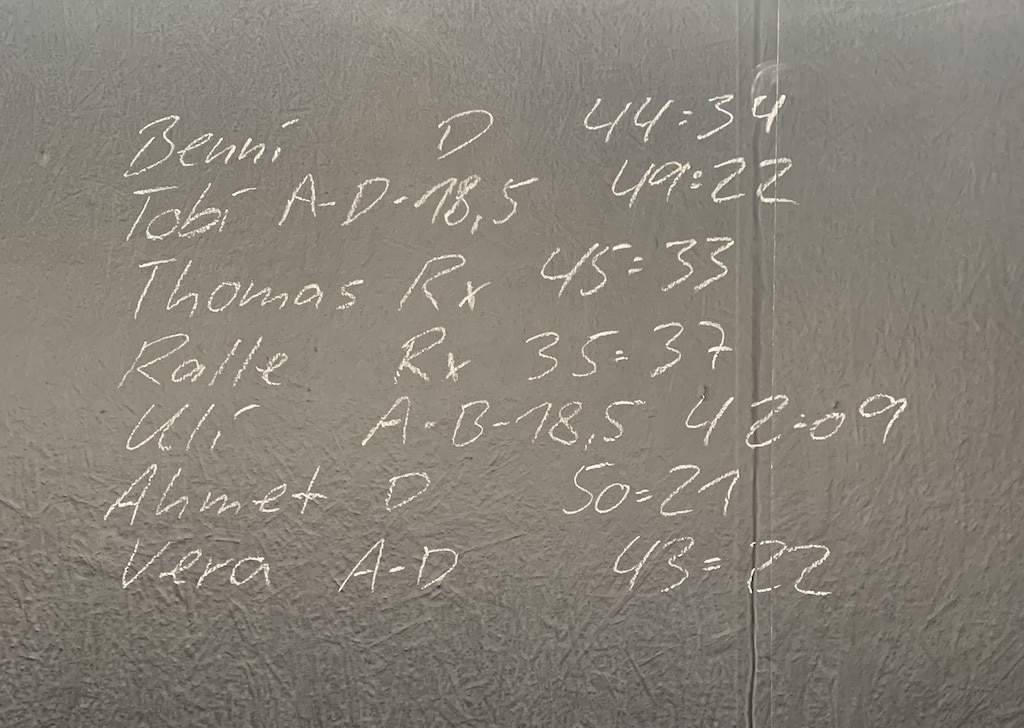 Benni D 44:34
Tobi A-D-18,5 49:22
Thomas Rx 45:33
Ralle Rx 35:37
Uli A-B-18,5 42:09
Ahmet D 50:21
Vera A-D 43:22